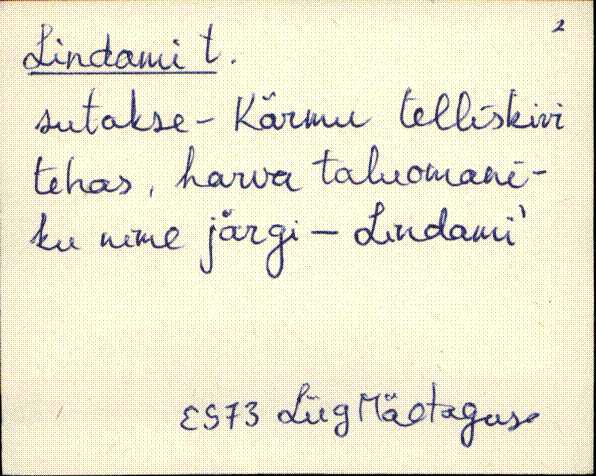 2
Lindami t.
sutakse - Kärmu telliskivi
tehas, harva taluomani-
ku nime järgi - Lindami'
ES73 Lüg Mäetaguse